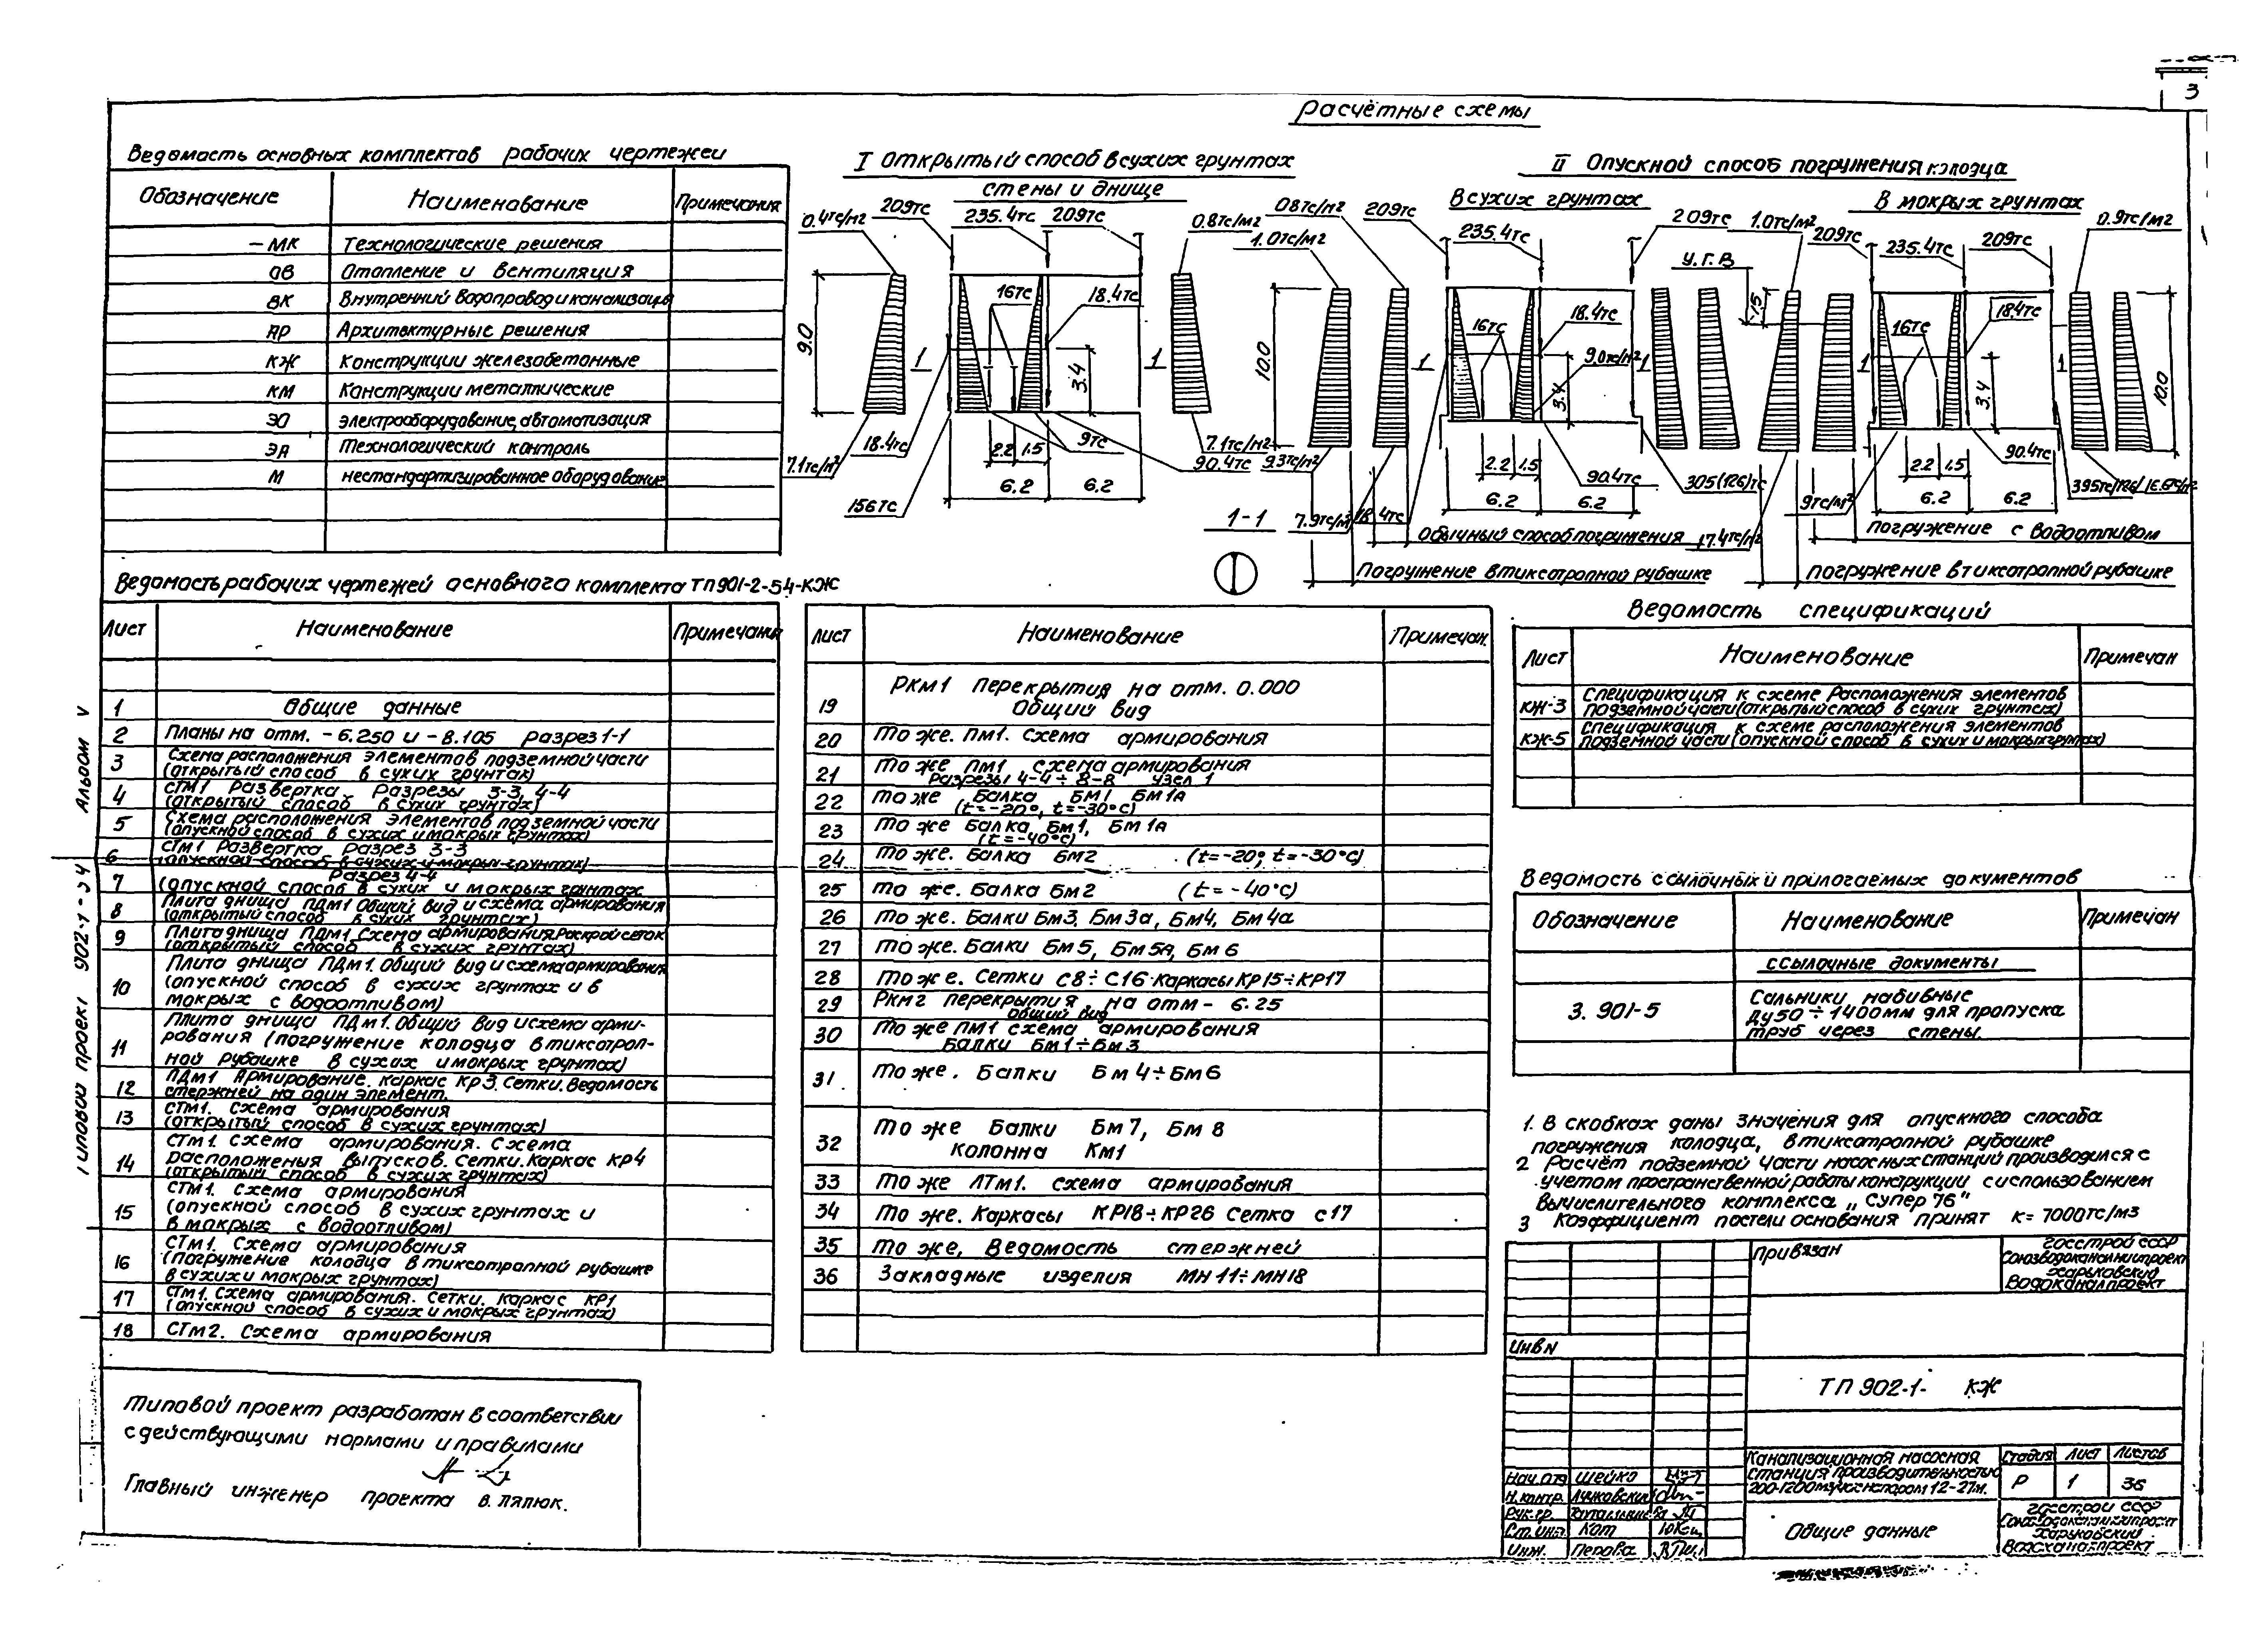 3
Расчётные схемы
Ведомость основных комплектов рабочих чертежей
Обозначение Наименование Примечания
-МК Технологические решения
ОВ Отопление и вентиляция
ВК Внутренний водопровод и канализация
АР Архитектурные решения
КЖ Конструкции железобетонные
КМ Конструкции металлические
ЭО электрооборудование, автоматизация
ЭА Технологический контроль
М нестандартизированное оборудование
I Открытый способ в сухих грунтах
стены и днище
0.4тс/м2 209тс 235.4тс 209тс 0.8тс/м2
9.0 16тс 18.4тс
1 3.4 1
7.1тс/м2 18.4тс 2.2 1.5 9тс 7.1тс/м2
90.4тс
6.2 6.2
156тс
1-1
II Опускной способ погружения колодца
В сухих грунтах
08тс/м2 209тс 209тс
1.0тс/м2 235.4тс
10.0 16тс 18.4тс
1 9.0тс/м2 1
3.4
9.3тс/м2 2.2 1.5 90.4тс 305(126)тс
6.2 6.2
7.9тс/м2 18.4тс
Обычный способ погружения
Погружение в тиксотропной рубашке
В мокрых грунтах
1.0тс/м2 209тс 235.4тс 209тс 0.9тс/м2
У.Г.В
16тс 18.4тс
1 3.4 1 10.0
2.2 1.5 90.4тс
9тс/м2 6.2 6.2
17.4тс/м2
погружение с водоотливом
погружение в тиксотропной рубашке
Ведомость рабочих чертежей основного комплекта ТП901-2-54-КЖ
Лист Наименование Примечания
1 Общие данные
2 Планы на отм. -6.250 и -8.105 Разрез 1-1
3 Схема расположения элементов подземной части
(открытый способ в сухих грунтах)
4 СТм1 Развертка. Разрезы 3-3, 4-4
(открытый способ в сухих грунтах)
5 Схема расположения элементов подземной части
(опускной способ в сухих и мокрых грунтах)
6 СТм1 Развертка разрез 3-3
(опускной способ в сухих и мокрых грунтах)
7 Разрез 4-4
(опускной способ в сухих и мокрых грунтах
8 Плита днища ПДм1 Общий вид и схема армирования
(открытый способ в сухих грунтах)
9 Плита днища ПДм1 Схема армирования. Раскрой сеток
(открытый способ в сухих грунтах)
10 Плита днища ПДм1. Общий вид и схема армирования
(опускной способ в сухих грунтах и в
мокрых с водоотливом)
11 Плита днища ПДм1. Общий вид и схема арми-
рования (погружение колодца в тиксотроп-
ной рубашке в сухих и мокрых грунтах)
12 ПДм1 Армирование. Каркас КР3. Сетки. Ведомость
стержней на один элемент.
13 СТм1. Схема армирования
(открытый способ в сухих грунтах)
14 СТм1. Схема армирования. Схема
расположения выпусков. Сетки. Каркас КР4
(открытый способ в сухих грунтах)
15 СТм1. Схема армирования
(опускной способ в сухих грунтах и
в мокрых с водоотливом)
16 СТм1. Схема армирования
(погружение колодца в тиксотропной рубашке
в сухих и мокрых грунтах)
17 СТм1. Схема армирования. Сетки. Каркас КР1
(опускной способ в сухих и мокрых грунтах)
18 СТм2. Схема армирования
Лист Наименование Примечан.
19 РКм1 Перекрытия на отм. 0.000
Общий вид
20 То же. Пм1. Схема армирования
21 То же Пм1 схема армирования
Разрезы 4-4÷8-8 Узел 1
22 То же Балка БМ1 БМ1А
(t=-20°, t=-30°С)
23 То же Балка Бм1, Бм1а
(t=-40°С)
24 То же. Балка Бм2 (t=-20°, t=-30°С)
25 То же. Балка Бм2 (t=-40°С)
26 То же. Балки Бм3, Бм3а, Бм4, Бм4а
27 То же. Балки Бм5, Бм5а, Бм6
28 То же. Сетки С8÷С16. Каркасы КР15÷КР17
29 РКм2 перекрытия на отм- 6.25
Общий вид
30 То же Пм1 схема армирования
Балки Бм1÷Бм3
31 То же. Балки Бм4÷Бм6
32 То же Балки Бм7, Бм8
Колонна Км1
33 То же ЛТм1. схема армирования
34 То же. Каркасы КР18÷КР26 Сетка с17
35 То же, Ведомость стержней
36 Закладные изделия МН11÷МН18
Ведомость спецификаций
Лист Наименование Примечан
КЖ-3 Спецификация к схеме расположения элементов
подземной части (открытый способ в сухих грунтах)
КЖ-5 Спецификация к схеме расположения элементов
подземной части (опускной способ в сухих и мокрых грунтах)
Ведомость ссылочных и прилагаемых документов
Обозначение Наименование Примечан
ссылочные документы
3. 901-5 Сальники набивные
Ду50÷1400мм для пропуска
труб через стены.
1. В скобках даны значения для опускного способа
погружения колодца, в тиксотропной рубашке
2 Расчёт подземной части насосных станций производился с
учетом пространственной работы конструкции с использованием
вычислительного комплекса „Супер 76"
3 Коэффициент постели основания принят к=7000тс/м3
Привязан
Госстрой СССР
Союзводоканалниипроект
Харьковский
Водоканалпроект
Инв N
ТП 902-1- КЖ
Нач.отд Шейко
Н.контр.
Рук.гр.
Ст.инж. Кот
Инж. Перова
Канализационная насосная
станция производительностью
200-1200м3/час напором 12-27м.
Стадия Лист Листов
Р 1 36
Общие данные
Госстрой СССР
Союзводоканалниипроект
Харьковский
Водоканалпроект
Типовой проект разработан в соответствии
с действующими нормами и правилами
Главный инженер проекта В. Лялюк.
Типовой проект 902-1-54 Альбом V